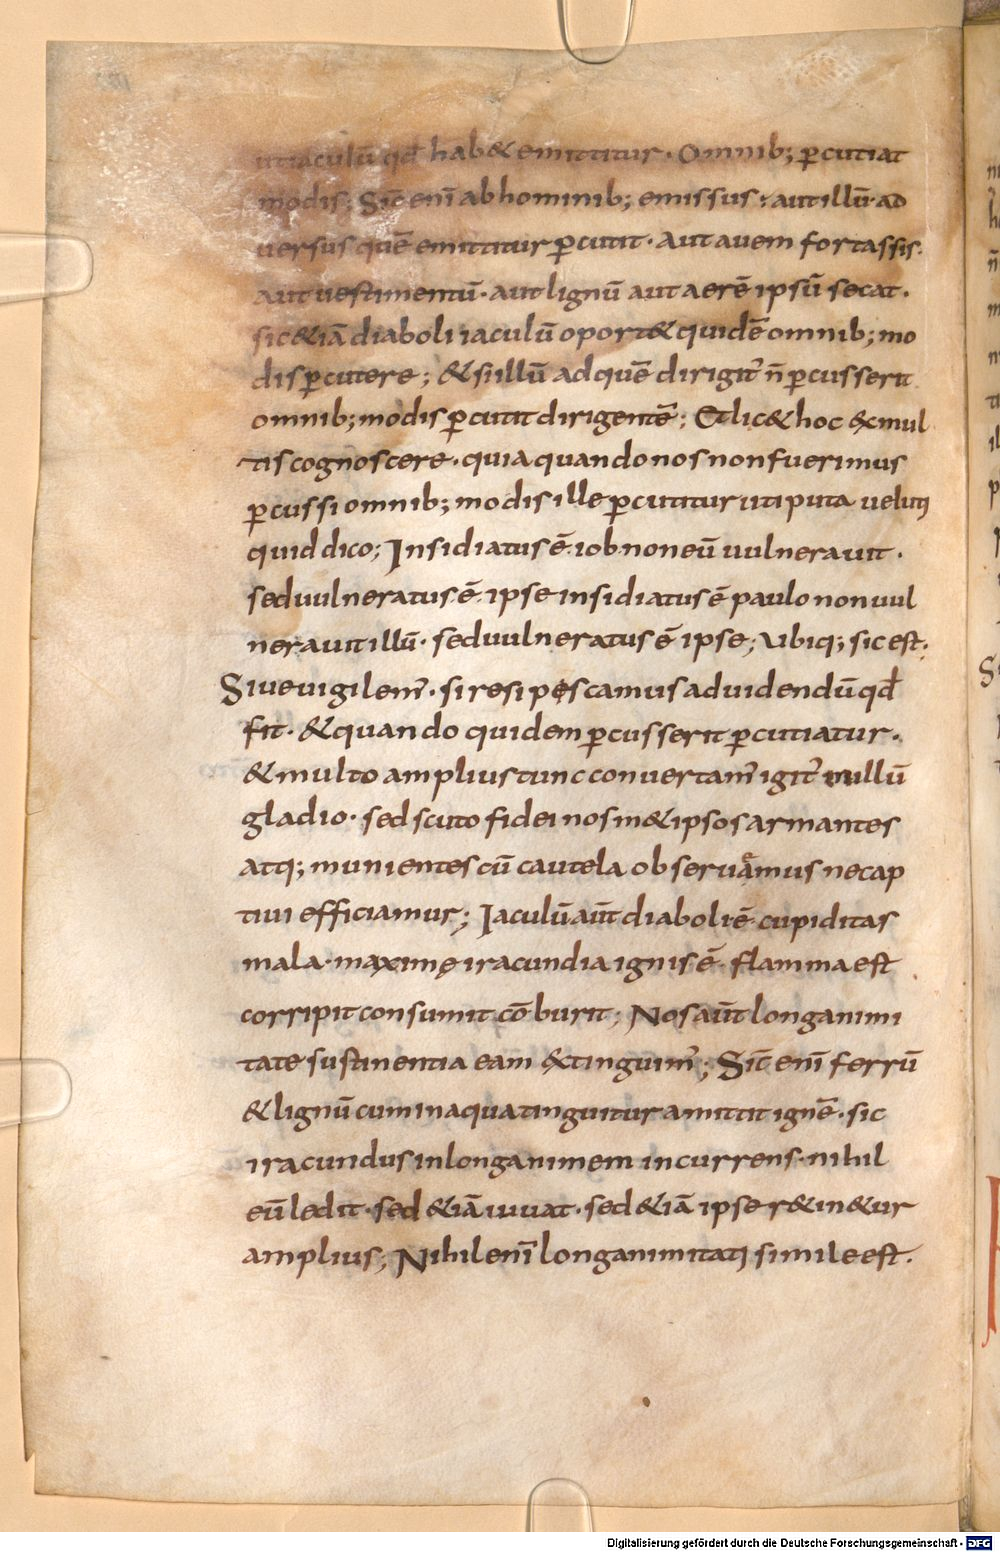 ut iaculū qđ hab& emittitur. Omnib; ꝑcutiat
modis; Sic̄ enī ab hominib; emissus; aut illū ad
uersus quē emittitur ꝑcutit. Aut auem fortassis.
aut uestimentū. aut lignū aut aerē ipsū secat.
sic &iā diaboli iaculū oport& quidē omnib; mo
dis ꝑcutere; & si illū ad quē dirigit᷑ n̄ ꝑcusserit
omnib; modis ꝑcutit dirigentē; & lic& hoc & mul
tis cognoscere. quia quando nos non fuerimus
ꝑcussi omnib; modis ille ꝑcutitur uti puta uelut
quid dico; Insidiatus ē iob non eū uulnerauit.
sed uulneratus ē ipse insidiatus ē paulo non uul
nerauit illū. sed uulneratus ē ipse; Ubiq; sic est.
Siue uigilem᷑. si resipescamus ad uidendū qđ
fit. & quando quidem ꝑcusserit ꝑcutiatur.
& multo amplius tunc conuertam᷑ igit᷑ in illū
gladio. sed scuto fidei nosm&ipsos armantes
atq; munientes cū cautela obseruamus ne cap
tiui efficiamur; Iaculū aūt diaboli ē cupiditas
mala. maximę iracundia ignis ē. flamma est
corripit consumit cōburit; Nos aūt longanimi
tate sustinentia eam &tinguim᷑; Sic̄ enī ferrū
& lignū cum in aqua tinguitur amittit ignē. sic
iracundus in longanimem incurrens. nihil
eū ledit. sed &iā iuuat. sed &iā ipse r&in&ur
amplius; Nihil enī longanimitati simile est.
Digitalisierung gefördert durch die Deutsche Forschungsgemeinschaft - DFG